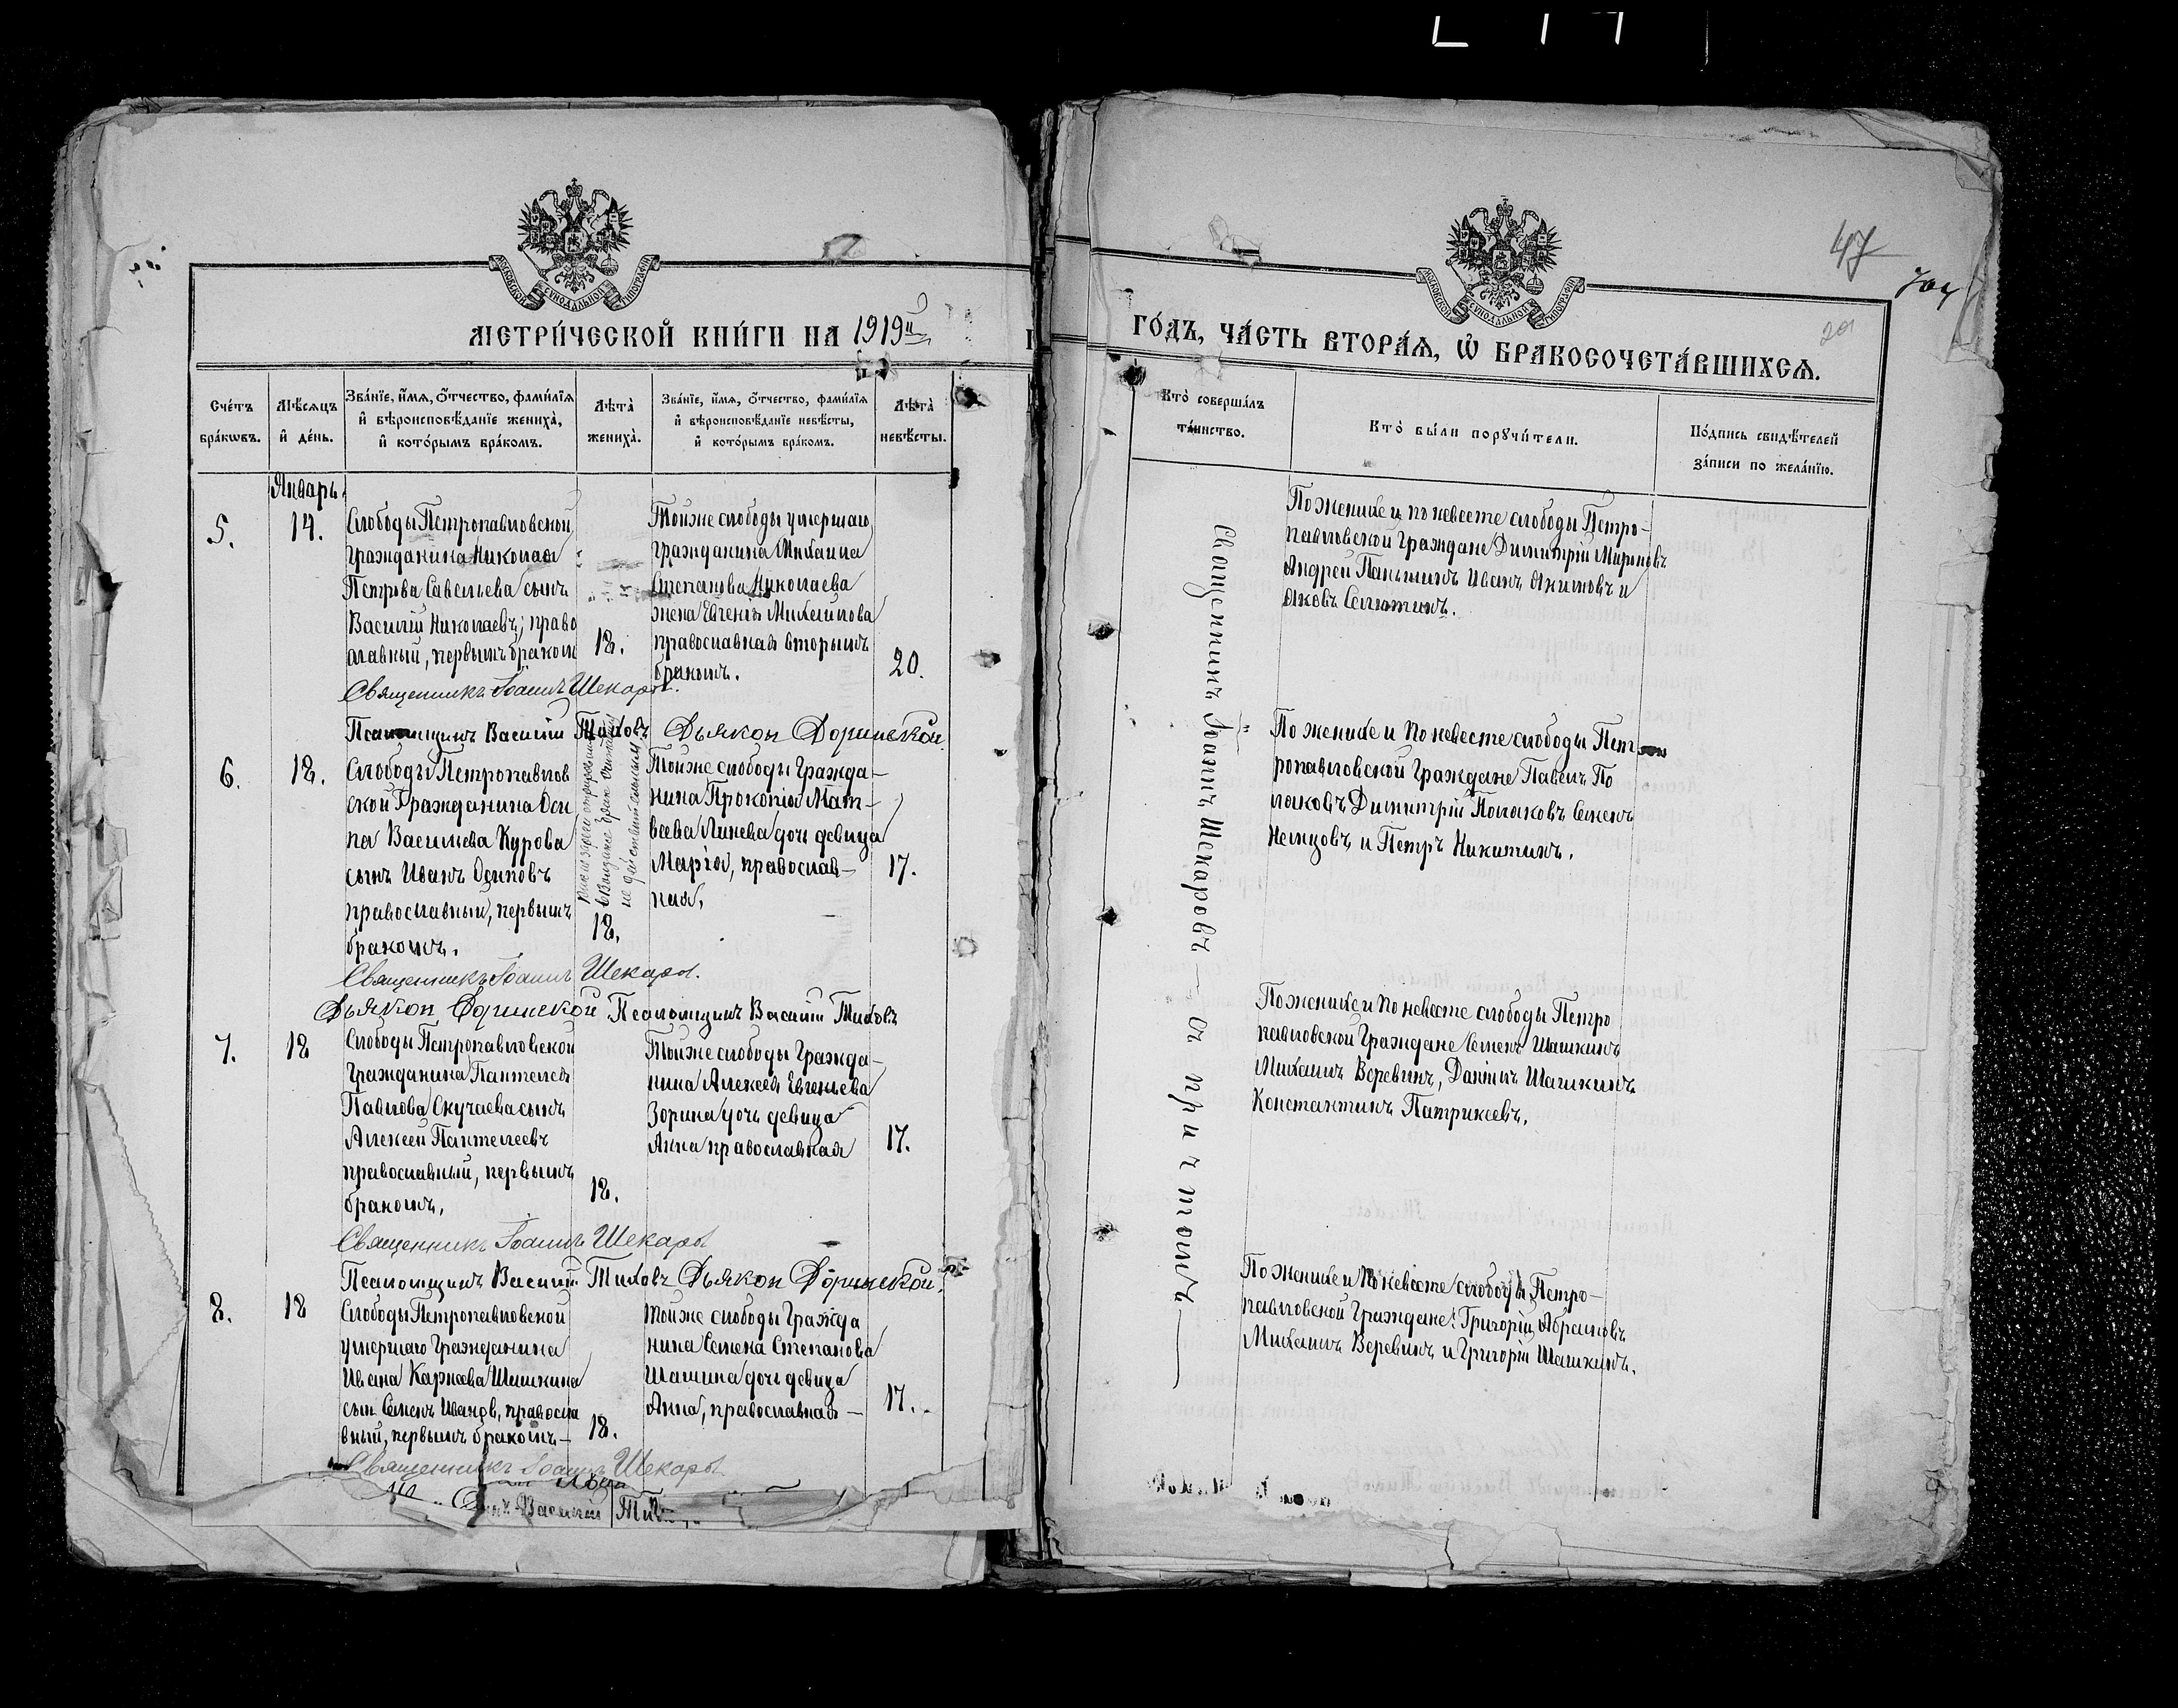 МОСКОВСКОЙ СУНОДАЛЬНОЙ ТИПОГРАФІИ
МЕТРИ́ЧЕСКОЙ КНИ́ГИ НА 1919й
Сче́тъ бра́кωвъ.
Мѣ́сяцъ и де́нь.
Зва́нїе, и́мѧ, ѻ́тчество, фами́лїѧ и вѣроисповѣ́данїе жениха̀, и кото́рымъ бра́комъ.
Лѣ́та̀ жениха̀.
Зва́нїе, и́мѧ, ѻ́тчество, фами́лїѧ и вѣроисповѣ́данїе невѣ́сты, и кото́рымъ бра́комъ.
Лѣ́та̀ невѣ́сты.
Январь.
5.
14.
Слободы Петропавловской
Гражданина Николая
Петрова Савельева сынъ
Василій Николаевъ, право
славный, первымъ браком
18.
Тойже слободы умершаго
Гражданина Михаила
Степанова Николаева
жена Евгенія Михайлова
православная вторымъ
бракомъ.
20.
Священникъ Іоаннъ Шекаров.
Псаломщикъ Василій Тиховъ Дьякон Доринской.
6.
18.
Слободы Петропавлов
ской Гражданина Оси
па Васильева Курова
сынъ Иванъ Осиповъ
православный, первымъ
бракомъ.
не действительным
18.
Тойже слободы Гражда-
нина Прокопія Мат-
веева Линева дочь девица
Марія, православ-
ная,
17.
Священникъ Іоаннъ Шекаров.
Дьякон Доринской Псаломщикъ Василій Тиховъ
7.
18
Слободы Петропавловской
Гражданина Пантелея
Павлова Скучаева сынъ
Алексей Пантелеевъ
православный, первымъ
бракомъ,
18.
Тойже слободы Гражда-
нина Алексея Евгеньева
Зорина дочь девица
Анна православная
17.
Священникъ Іоаннъ Шекаров
Псаломщикъ Василій Тиховъ Дьякон Доринской.
8.
18
Слободы Петропавловской
умершаго Гражданина
Ивана Карнеева Шишкина
сын Семенъ Иванов, правосла
вный, первымъ бракомъ-
18.
Тойже слободы Гражда
нина Семена Степанова
Шашина дочь девица
Анна, православная-
17.
Священникъ Іоаннъ Шекаров
Василій Тих
47
704
20
МОСКОВСКОЙ СУНОДАЛЬНОЙ ТИПОГРАФІИ
ГО́ДЪ, ЧА́СТЬ ВТОРА́Я, Ѽ БРАКОСОЧЕТА́ВШИХСЯ.
Кто̀ соверша́лъ та́инство.
Кто̀ бы́ли порꙋчи́тели.
По́дпись свидѣ́телей за́писи по жела́нїю.
Священникъ Іоаннъ Шекаровъ - съ причтомъ
По женихе и по невесте слободы Петро-
павловской Граждане Димитрій Мироновъ
Андрей Паньшинъ Иванъ Акимовъ и
Яковъ Селютинъ.
По женихе и по невесте слободы Пет
ропавловской Граждане Павелъ По
локовъ Димитрій Полоковъ Семенъ
Немцовъ и Петръ Никитинъ.
По женихе и по невесте слободы Петро
павловской Граждане Семенъ Шашкинъ
Михаилъ Веревинъ, Даніилъ Шашкинъ
Константинъ Патрикеевъ.
По женихе и по невесте слободы Петро-
павловской Граждане: Григорій Абрамовъ
Михаилъ Веревинъ и Григорій Шашкинъ.